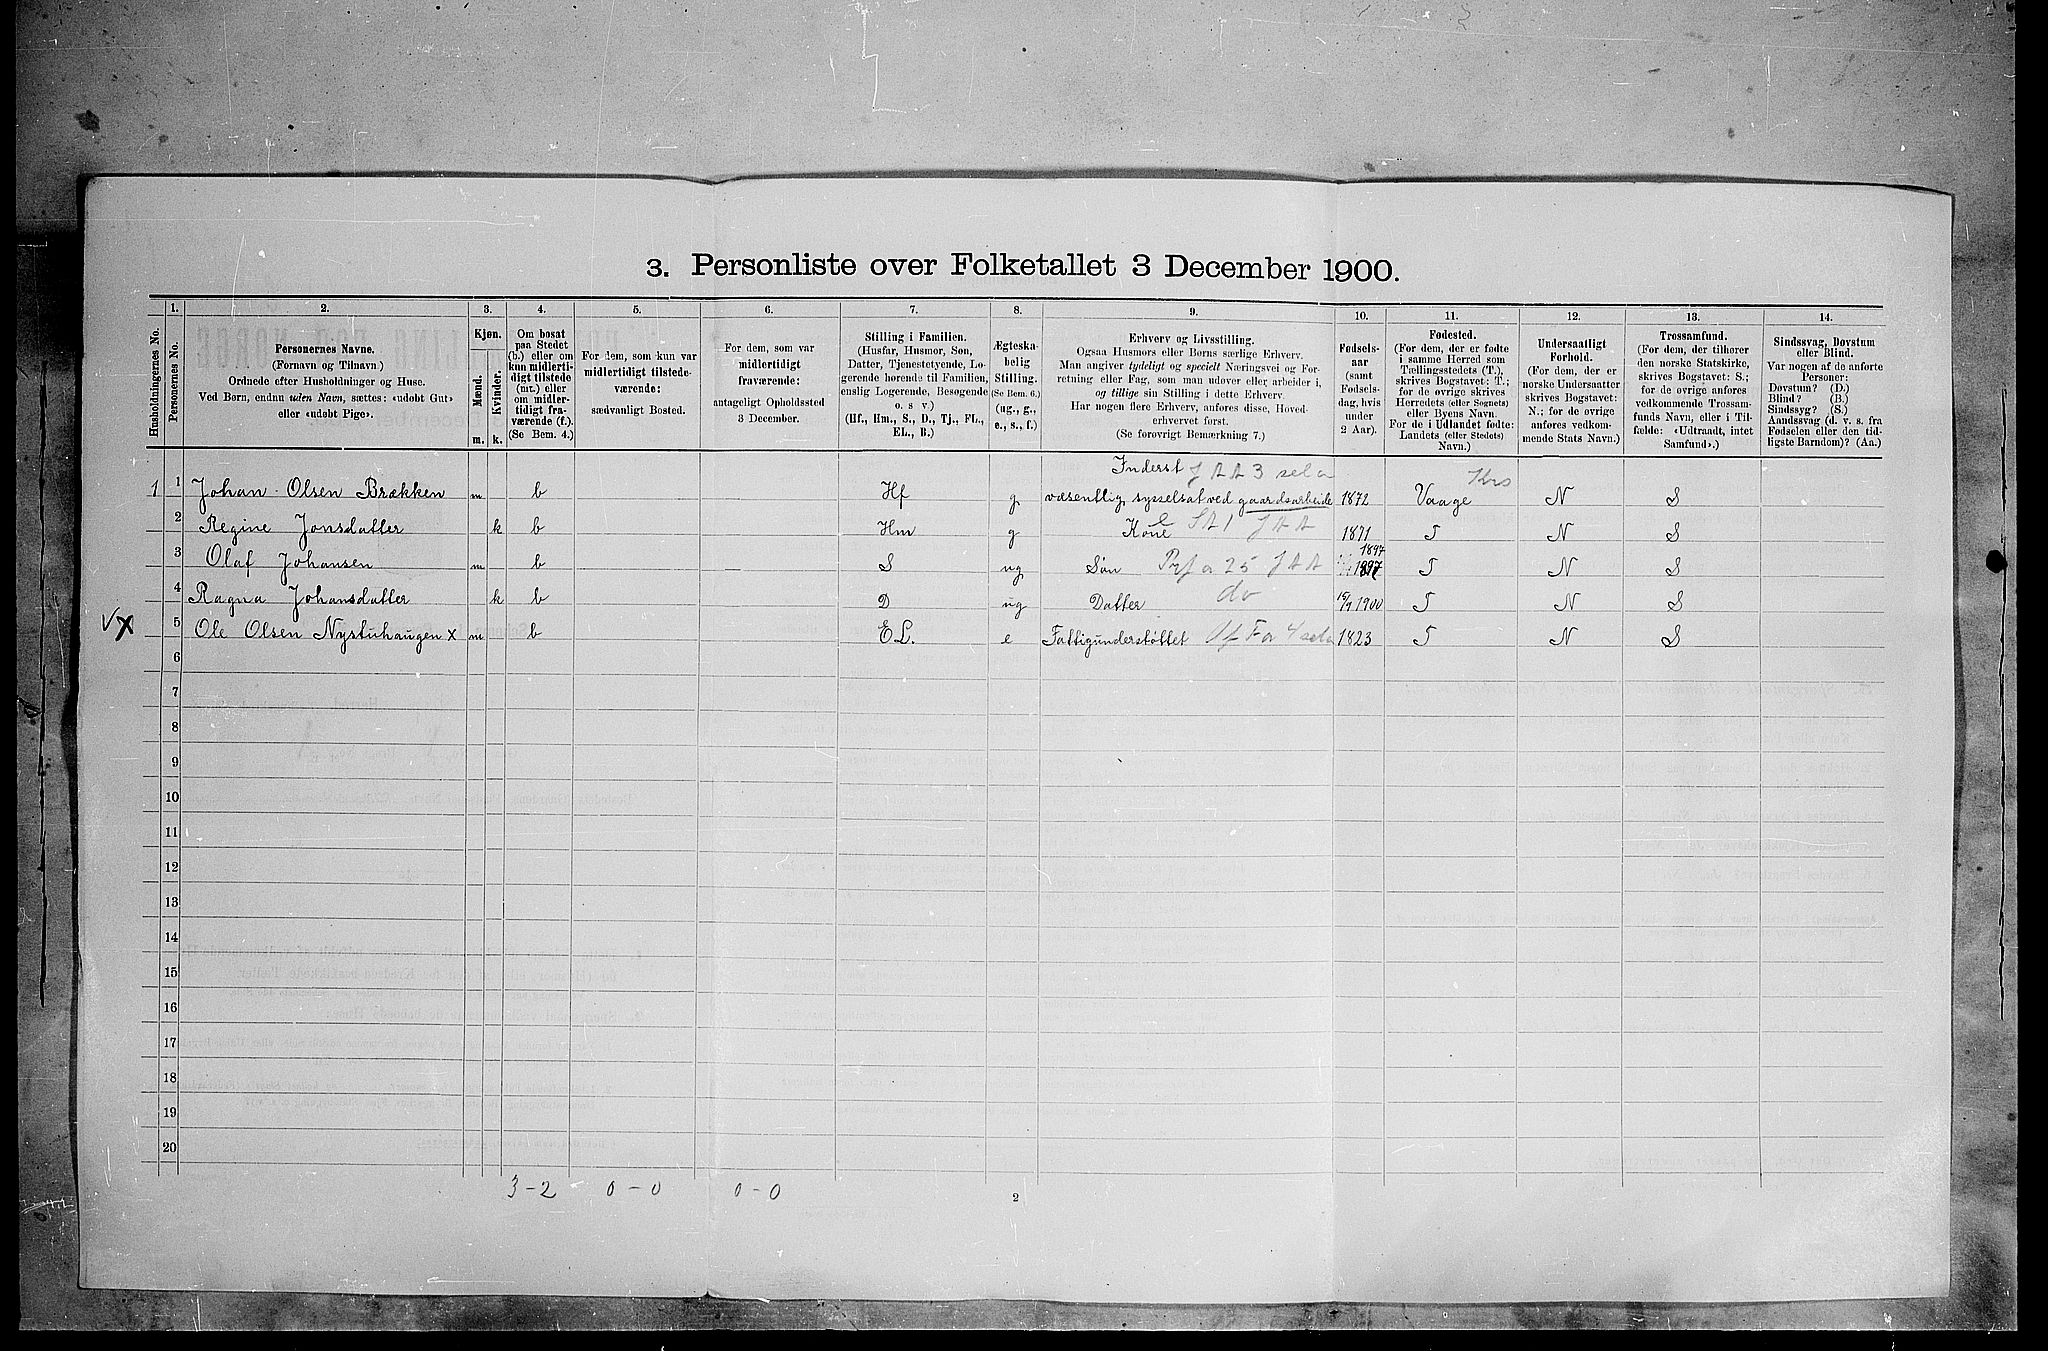 3. Personliste over Folketallet 3 December 1900.
1. 2. 3. 4. 5. 6. 7. 8. 9. 10. 11. 12. 13. 14.
Husholdningernes No.
Personernes No.
Personernes Navne.
(Fornavn og Tilnavn.)
Ordnede efter Husholdninger og Huse.
Ved Børn, endnu uden Navn, sættes: «udøbt Gut»
eller «udøbt Pige».
Kjøn.
Mænd.
Kvinder.
m. k.
Om bosat
paa Stedet
(b.) eller om
kun midlerti-
digt tilstede
(mt.) eller
om midler-
tidigt fra-
værende (f.).
(Se Bem. 4.)
For dem, som kun var
midlertidigt tilstede-
værende:
sædvanligt Bosted.
For dem, som var
midlertidigt
fraværende:
antageligt Opholdssted
3 December.
Stilling i Familien.
(Husfar, Husmor, Søn,
Datter, Tjenestetyende, Lo-
gerende hørende til Familien,
enslig Logerende, Besøgende
o. s. v.)
(Hf., Hm., S., D., Tj., FL.,
EL., B.)
Ægteska-
belig
Stilling.
(Se Bem. 6.)
(ug., g.,
e., s., f.)
Erhverv og Livsstilling.
Ogsaa Husmors eller Børns særlige Erhverv.
Man angiver tydeligt og specielt Næringsvei og For-
retning eller Fag, som man udøver eller arbeider i,
og tillige sin Stilling i dette Erhverv.
Har nogen flere Erhverv, anføres disse, Hoved-
erhvervet først.
(Se forøvrigt Bemærkning 7.)
Fødsels-
aar
(samt
Fødsels-
dag, hvis
under
2 Aar).
Fødested.
(For dem, der er fødte
i samme Herred som
Tællingsstedets (T.),
skrives Bogstavet: T.;
for de øvrige skrives
Herredets (eller Sognets)
eller Byens Navn.
For de i Udlandet fødte:
Landets (eller Stedets)
Navn.)
Undersaatligt
Forhold.
(For dem, der er
norske Undersaatter
skrives Bogstavet:
N.; for de øvrige
anføres vedkom-
mende Stats Navn.)
Trossamfund.
(For dem, der tilhører
den norske Statskirke,
skrives Bogstavet: S.;
for de øvrige anføres
vedkommende Trossam-
funds Navn, eller i Til-
fælde: «Udtraadt, intet
Samfund».)
Sindssvag, Døvstum
eller Blind.
Var nogen af de anførte
Personer:
Døvstum? (D.)
Blind? (B.)
Sindssyg? (S.)
Aandssvag (d. v. s. fra
Fødselen eller den tid-
ligste Barndom)? (Aa.)
Inderst JAA 3 sela Krs
1 1 Johan Olsen Brækken m b Hf g væsentlig sysselsat ved gaardsarbeide 1872 Vaage N S
2 Regine Jonsdatter k b Hm g Kone SA1 JAA 1871 T N S
1897
3 Olaf Johansen m b S ug Søn JAA T N S
4 Ragna Johansdatter k b D ug Datter do 15/7 1900 T N S
5 Ole Olsen Nystuhaugen x m b EL. e Fattigunderstøttet 1823 T N S
6
7
8
9
10
11
12
13
14
15
16
17
18
19
20
3-2 0-0 0-0
2